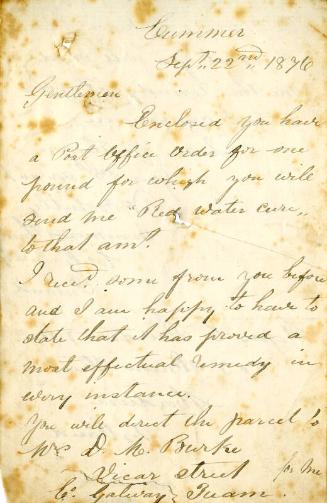 Cummer
Sept. 22nd, 1876
Gentlemen
Enclosed you have
a Post Office Order for one
pound for which you will
send me "Red water cure"
to that amt.
I recd. some from you before
and I am happy to have to
state that it has proved a
most effectual remedy in
every instance.
You will direct the parcel to
D. M. Burke
Vicar street for me
Co. Galway Tuam